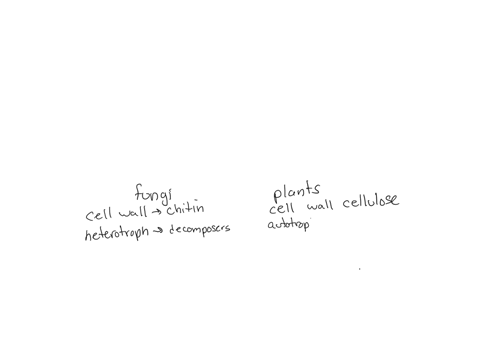 fungi
cell wall → chitin
heterotroph → decomposers
plants
cell wall cellulose
autotrop